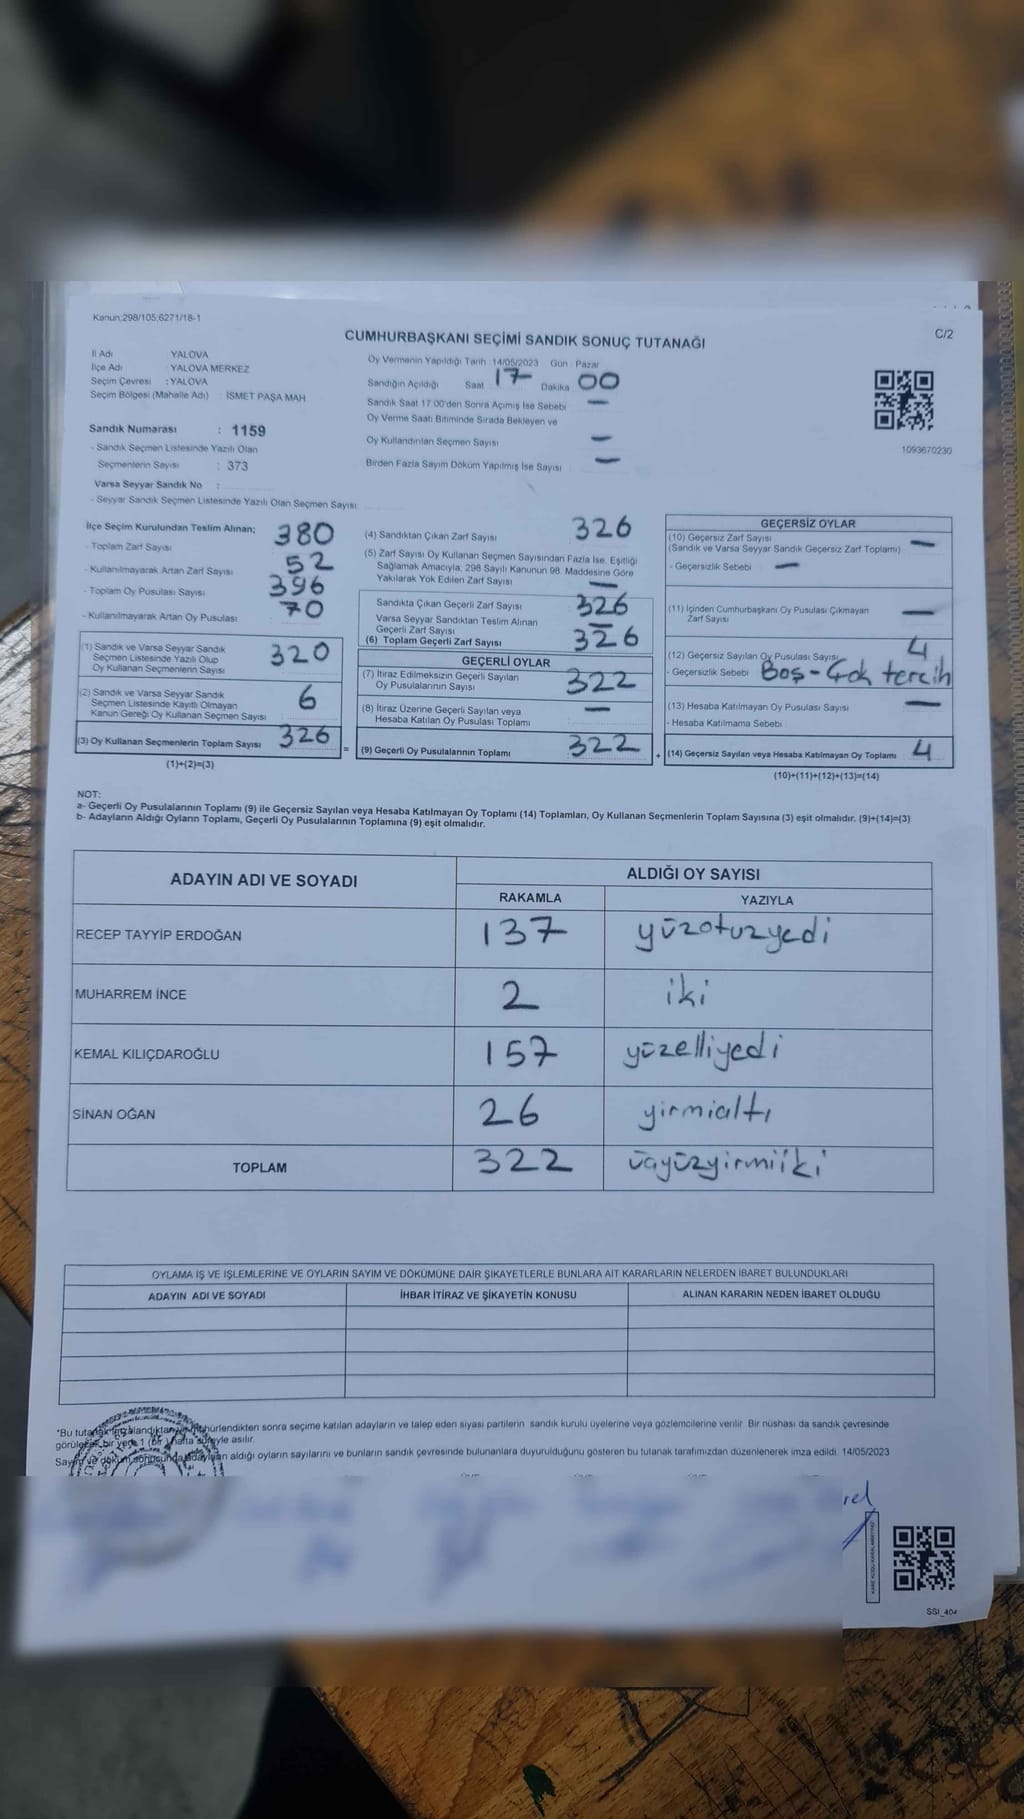 Kanun;298/105;6271/18-1
C/2
CUMHURBAŞKANI SEÇİMİ SANDIK SONUÇ TUTANAĞI
İl Adı YALOVA
İlçe Adı : YALOVA MERKEZ
Seçim Çevresi : YALOVA
Seçim Bölgesi (Mahalle Adı) : İSMET PAŞA MAH.
Sandık Numarası : 1159
- Sandık Seçmen Listesinde Yazılı Olan
Seçmenlerin Sayısı : 373
Varsa Seyyar Sandık No :
- Seyyar Sandık Seçmen Listesinde Yazılı Olan Seçmen Sayısı
Oy Vermenin Yapıldığı Tarih :14/05/2023 Gün : Pazar
Sandığın Açıldığı Saat 17 Dakika 00
Sandık Saat 17:00'den Sonra Açımış İse Sebebi —
Oy Verme Saati Bitiminde Sırada Bekleyen ve
Oy Kullandırılan Seçmen Sayısı —
Birden Fazla Sayım Döküm Yapılmış İse Sayısı —
1093670230
İlçe Seçim Kurulundan Teslim Alınan;
- Toplam Zarf Sayısı 380
- Kullanılmayarak Artan Zarf Sayısı 52
- Toplam Oy Pusulası Sayısı 396
- Kullanılmayarak Artan Oy Pusulası 70
(1) Sandık ve Varsa Seyyar Sandık
Seçmen Listesinde Yazılı Olup
Oy Kullanan Seçmenlerin Sayısı 320
(2) Sandık ve Varsa Seyyar Sandık
Seçmen Listesinde Kayıtlı Olmayan
Kanun Gereği Oy Kullanan Seçmen Sayısı 6
(3) Oy Kullanan Seçmenlerin Toplam Sayısı 326
(1)+(2)=(3)
=
(4) Sandıktan Çıkan Zarf Sayısı 326
(5) Zarf Sayısı Oy Kullanan Seçmen Sayısından Fazla İse, Eşitliği
Sağlamak Amacıyla, 298 Sayılı Kanunun 98. Maddesine Göre
Yakılarak Yok Edilen Zarf Sayısı —
Sandıkta Çıkan Geçerli Zarf Sayısı 326
Varsa Seyyar Sandıktan Teslim Alınan
Geçerli Zarf Sayısı —
(6) Toplam Geçerli Zarf Sayısı 326
GEÇERLİ OYLAR
(7) İtiraz Edilmeksizin Geçerli Sayılan
Oy Pusulalarının Sayısı 322
(8) İtiraz Üzerine Geçerli Sayılan veya
Hesaba Katılan Oy Pusulası Toplamı —
(9) Geçerli Oy Pusulalarının Toplamı 322
+
GEÇERSİZ OYLAR
(10) Geçersiz Zarf Sayısı
(Sandık ve Varsa Seyyar Sandık Geçersiz Zarf Toplamı) —
- Geçersizlik Sebebi —
(11) İçinden Cumhurbaşkanı Oy Pusulası Çıkmayan
Zarf Sayısı —
(12) Geçersiz Sayılan Oy Pusulası Sayısı 4
- Geçersizlik Sebebi Boş-Çok tercih
(13) Hesaba Katılmayan Oy Pusulası Sayısı —
- Hesaba Katılmama Sebebi
(14) Geçersiz Sayılan veya Hesaba Katılmayan Oy Toplamı 4
(10)+(11)+(12)+(13)=(14)
NOT:
a- Geçerli Oy Pusulalarının Toplamı (9) ile Geçersiz Sayılan veya Hesaba Katılmayan Oy Toplamı (14) Toplamları, Oy Kullanan Seçmenlerin Toplam Sayısına (3) eşit olmalıdır. (9)+(14)=(3)
b- Adayların Aldığı Oyların Toplamı, Geçerli Oy Pusulalarının Toplamına (9) eşit olmalıdır.
ADAYIN ADI VE SOYADI ALDIĞI OY SAYISI
RAKAMLA YAZIYLA
RECEP TAYYİP ERDOĞAN 137 yüzotuzyedi
MUHARREM İNCE 2 iki
KEMAL KILIÇDAROĞLU 157 yüzelliyedi
SİNAN OĞAN 26 yirmialtı
TOPLAM 322 üçyüzyirmiiki
OYLAMA İŞ VE İŞLEMLERİNE VE OYLARIN SAYIM VE DÖKÜMÜNE DAİR ŞİKAYETLERLE BUNLARA AİT KARARLARIN NELERDEN İBARET BULUNDUKLARI
ADAYIN ADI VE SOYADI İHBAR İTİRAZ VE ŞİKAYETİN KONUSU ALINAN KARARIN NEDEN İBARET OLDUĞU
*Bu tutanak sonra seçime katılan adayların ve talep eden siyasi partilerin sandık kurulu üyelerine veya gözlemcilerine verilir. Bir nüshası da sandık çevresinde
bir yere 1 (bir) hafta süreyle asılır.
aldığı oyların sayılarını ve bunların sandık çevresinde bulunanlara duyurulduğunu gösteren bu tutanak tarafımızdan düzenlenerek imza edildi. 14/05/2023
SSI_404